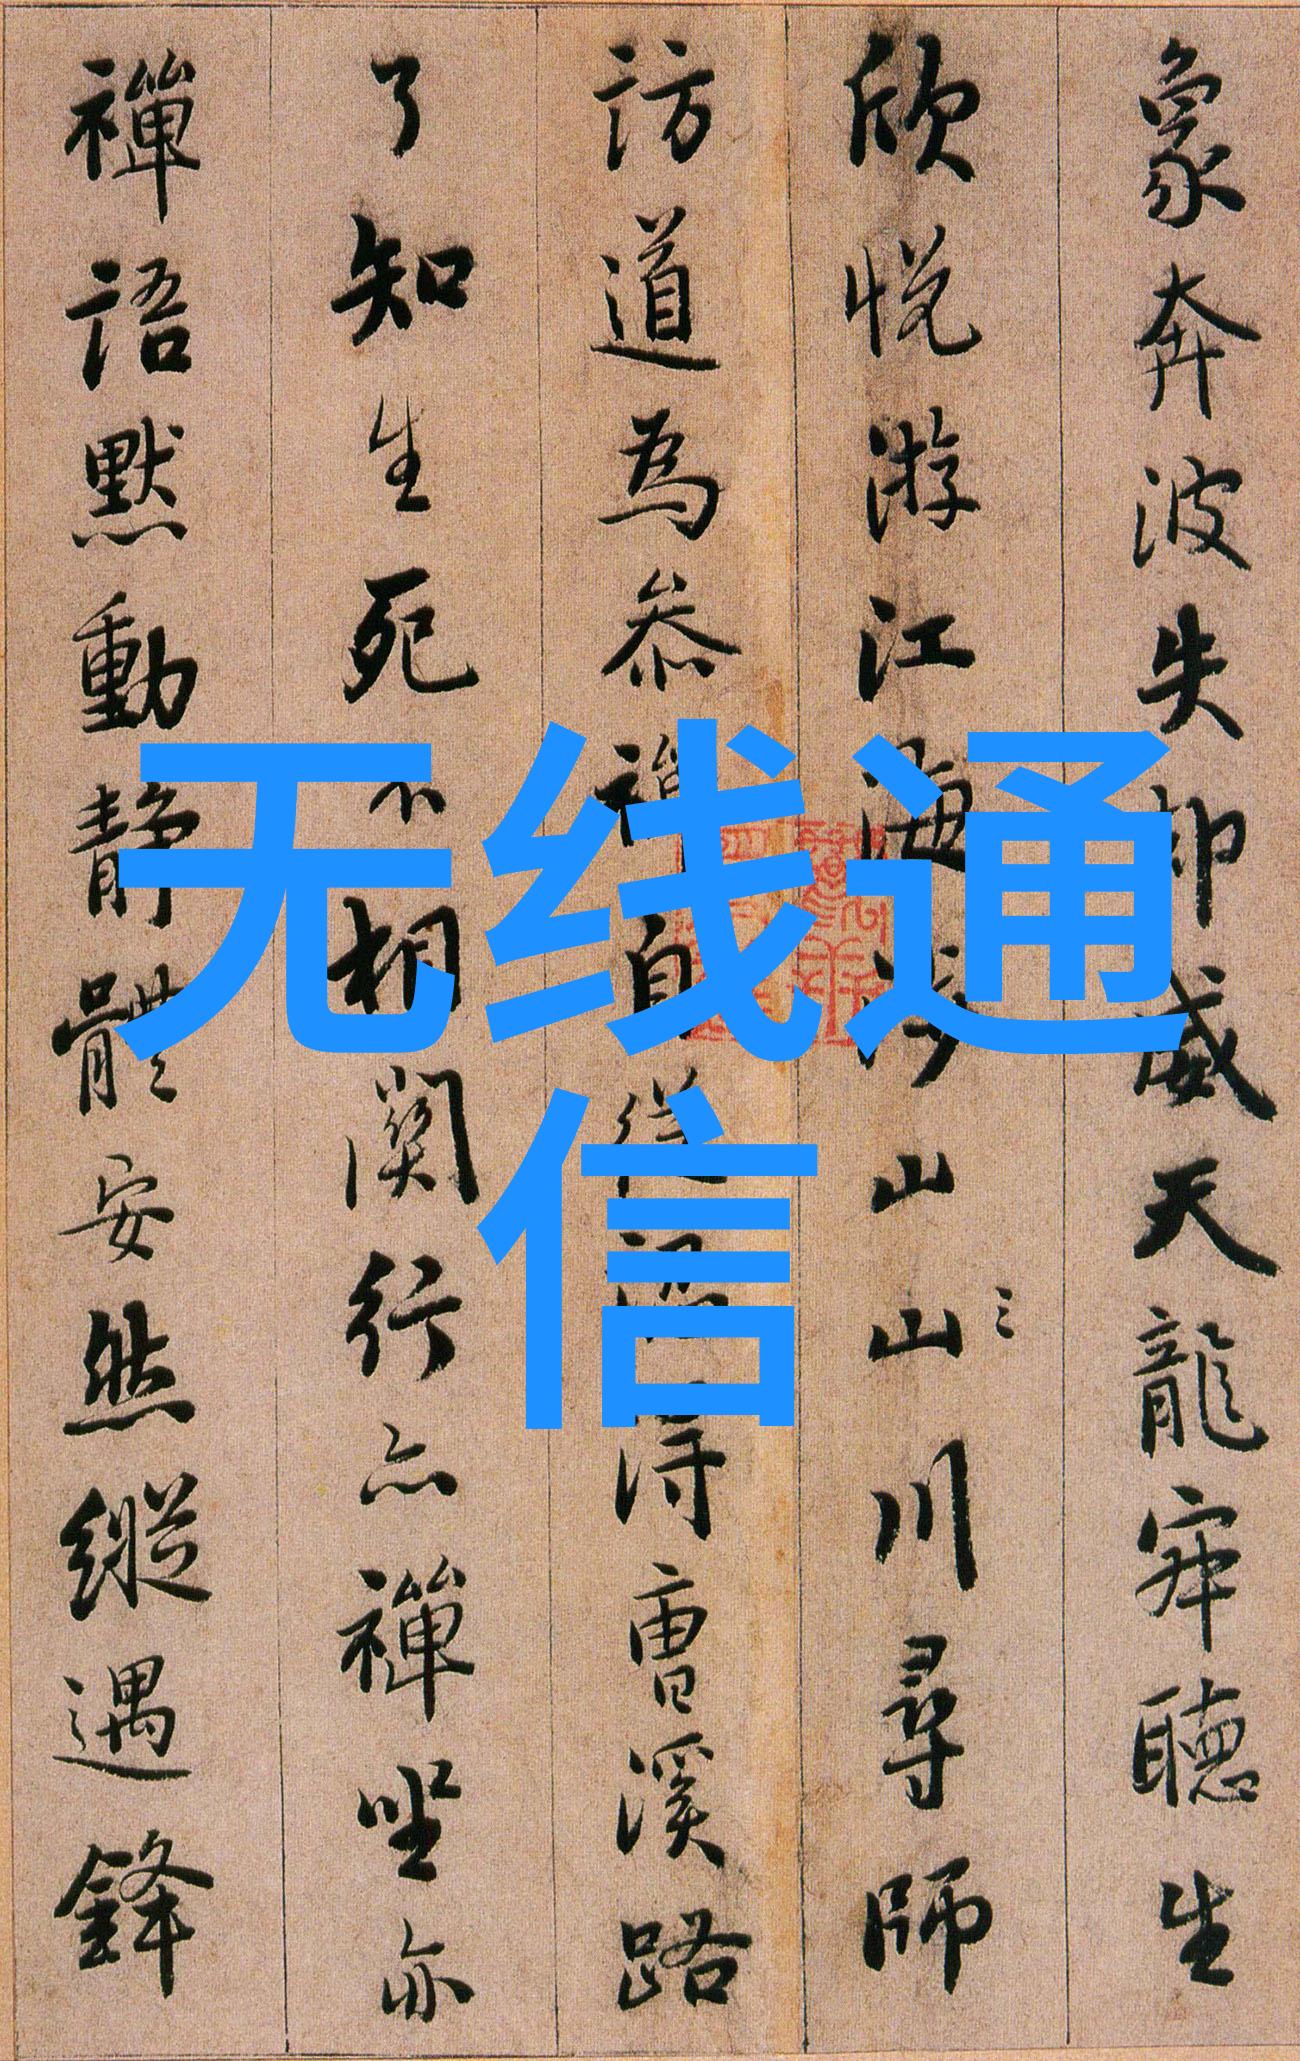 象奔波失却威天龍寂聽生
欣悅游江海涉山山川尋師
訪道為叅禪自從得曹溪路
了知生死不相關行亦禪坐亦
禪語默動静體安然縱遇鋒
无线通
信